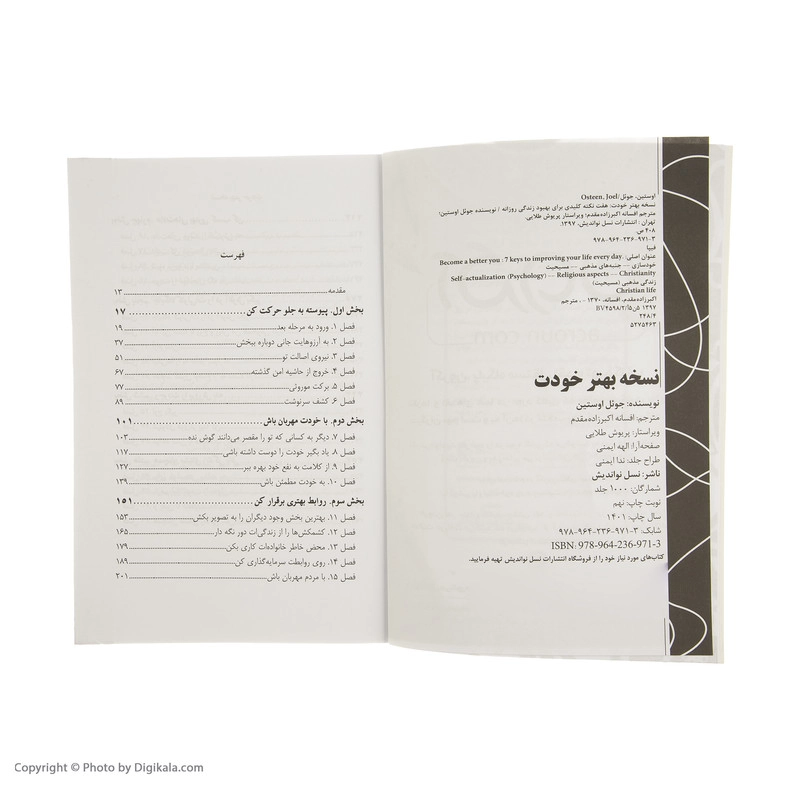 اوستین، جوئل/Osteen, Joel
نسخه بهتر خودت: هفت نکته کلیدی برای بهبود زندگی روزانه / نویسنده جوئل اوستین؛
مترجم افسانه اکبرزاده‌مقدم؛ ویراستار پریوش طلایی.
تهران: انتشارات نسل نواندیش، ۱۳۹۷.
۴۰۸ ص.
۹۷۸-۹۶۴-۲۳۶-۹۷۱-۳
فیپا
عنوان اصلی: Become a better you : 7 keys to improving your life every day.
خودسازی -- جنبه‌های مذهبی -- مسیحیت
Self-actualization (Psychology) -- Religious aspects -- Christianity
زندگی مذهبی (مسیحیت)
Christian life
اکبرزاده مقدم، افسانه، ۱۳۷۰ - ، مترجم
۲۴۸/۴
۵۲۷۵۴۶۳
نسخه بهتر خودت
نویسنده: جوئل اوستین
مترجم: افسانه اکبرزاده‌مقدم
ویراستار: پریوش طلایی
صفحه‌آرا: الهه ایمنی
طراح جلد: ندا ایمنی
ناشر: نسل نواندیش
شمارگان: ۱۰۰۰ جلد
نوبت چاپ: نهم
سال چاپ: ۱۴۰۱
شابک: ۳-۹۷۱-۲۳۶-۹۶۴-۹۷۸
ISBN: 978-964-236-971-3
کتاب‌های مورد نیاز خود را از فروشگاه انتشارات نسل نواندیش تهیه فرمایید.
فهرست
مقدمه ۱۳
بخش اول. پیوسته به جلو حرکت کن ۱۷
فصل ۱. ورود به مرحله بعد ۱۹
فصل ۲. به آرزوهایت جانی دوباره ببخش ۳۷
فصل ۳. نیروی اصالت تو ۵۱
فصل ۴. خروج از حاشیه امن گذشته ۶۷
فصل ۵. برکت موروثی ۷۷
فصل ۶. کشف سرنوشت ۸۹
بخش دوم. با خودت مهربان باش ۱۰۱
فصل ۷. دیگر به کسانی که تو را مقصر می‌دانند گوش نده ۱۰۳
فصل ۸. یاد بگیر خودت را دوست داشته باشی ۱۱۷
فصل ۹. از کلامت به نفع خود بهره ببر ۱۲۷
فصل ۱۰. به خودت مطمئن باش ۱۳۹
بخش سوم. روابط بهتری برقرار کن ۱۵۱
فصل ۱۱. بهترین بخش وجود دیگران را به تصویر بکش ۱۵۳
فصل ۱۲. کشمکش‌ها را از زندگی‌ات دور نگه دار ۱۶۵
فصل ۱۳. محض خاطر خانواده‌ات کاری بکن ۱۷۹
فصل ۱۴. روی روابطت سرمایه‌گذاری کن ۱۸۹
فصل ۱۵. با مردم مهربان باش ۲۰۱
Copyright © Photo by Digikala.com